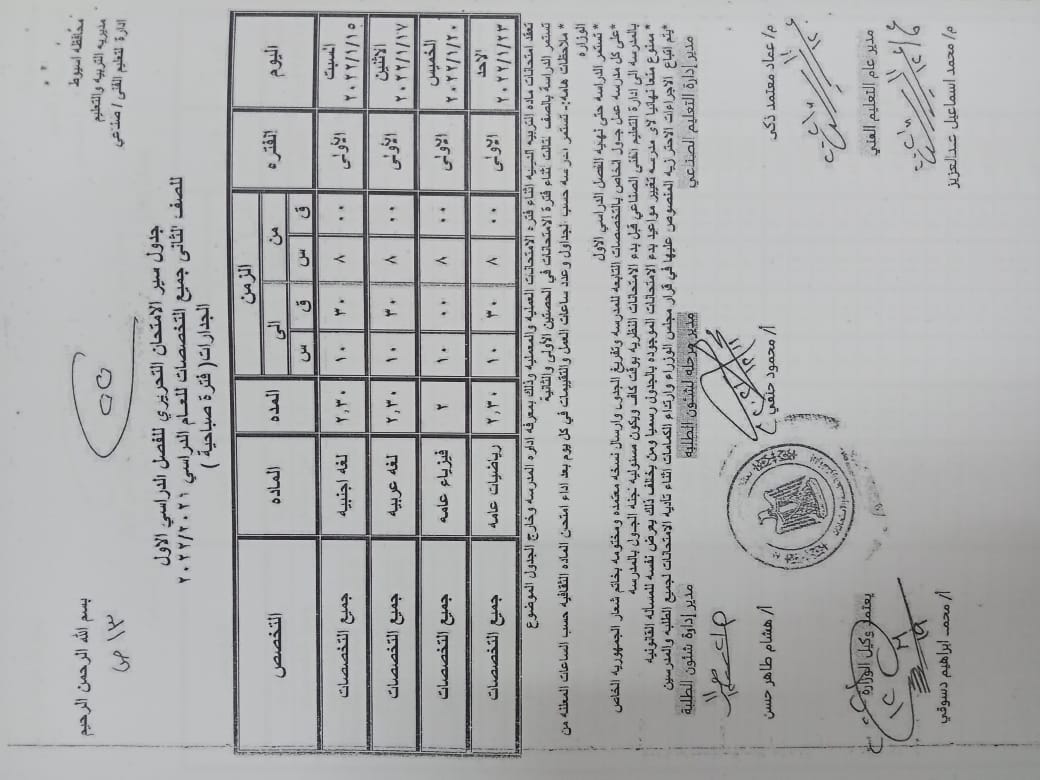 محافظه اسيوط
مديريه التربيه والتعليم
ادارة التعليم الفنى / صناعي
بسم الله الرحمن الرحيم
ص ١٣
جدول سير الامتحان التحريري للفصل الدراسي الاول
للصف الثانى جميع التخصصات للعام الدراسي ٢٠٢٢/٢٠٢١
الجدارات( فترة صباحية )
اليوم الفتره الزمن المده الماده التخصص
من الى
ق س ق س
السبت ٢٠٢٢/١/١٥ الأولى ٠٠ ٨ ٣٠ ١٠ ٢,٣٠ لغه اجنبيه جميع التخصصات
الاثنين ٢٠٢٢/١/١٧ الأولى ٠٠ ٨ ٣٠ ١٠ ٢,٣٠ لغه عربيه جميع التخصصات
الخميس ٢٠٢٢/١/٢٠ الأولى ٠٠ ٨ ٠٠ ١٠ ٢ فيزياء عامه جميع التخصصات
الاحد ٢٠٢٢/١/٢٣ الاولى ٠٠ ٨ ٣٠ ١٠ ٢,٣٠ رياضيات عامه جميع التخصصات
تعقد امتحانات ماده التربيه الدينيه اثناء فتره الامتحانات العمليه والمعمليه وذلك بمعرفه اداره المدرسه وخارج الجدول الموضوع
تستمر الدراسة بالصف الثالث اثناء فترة الامتحانات في الحصتين الأولى والثانية
* ملاحظات هامه:- تستمر الدرسه حسب الجداول وعدد ساعات العمل والتقييمات في كل يوم بعد اداء امتحان الماده الثقافيه حسب الساعات المعلنه من
الوزاره
* تستمر الدراسه حتى نهايه الفصل الدراسي الاول
*على كل مدرسه عمل جدول الخاص بالتخصصات التابعه للمدرسه وتفريغ الجدول وارسال نسخه معتمده ومختومه بخاتم شعار الجمهوريه الخاص
بالمدرسه الى ادارة التعليم الفنى الصناعي قبل بدء الامتحانات النظريه بوقت كاف ويكون مسئوليه لجنه الجدول بالمدرسه
* ممنوع منعا نهائيا لاى مدرسه تغيير مواعيد بدء الامتحانات الموجوده بالجدول رسميا ومن يخالف ذلك يعرض نفسه للمسأله القانونيه
*يتم اتباع الاجراءات الاحترازيه المنصوص عليها في قرار مجلس الوزراء وارتداء الكمامات اثناء تاديه الامتحانات لجميع الطلبه والمدرسين
مدير إدارة التعليم الصناعي مدير مرحله لشئون الطلبه مدير إدارة شئون الطلبة
م/ عماد معتمد ذكى أ/ محمود حنفي أ/ هشام طاهر حسن
مدير عام التعليم الفني يعتمد وكيل الوزارة
م/ محمد اسماعيل عبدالعزيز أ/ محمد ابراهيم دسوقي